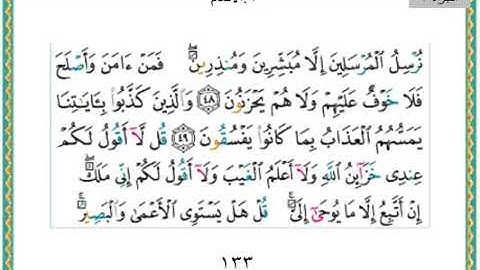 نُرۡسِلُ ٱلۡمُرۡسَلِينَ إِلَّا مُبَشِّرِينَ وَمُنذِرِينَۖ فَمَنۡ ءَامَنَ وَأَصۡلَحَ
فَلَا خَوۡفٌ عَلَيۡهِمۡ وَلَا هُمۡ يَحۡزَنُونَ ٤٨ وَٱلَّذِينَ كَذَّبُوا۟ بِـَٔايَٰتِنَا
يَمَسُّهُمُ ٱلۡعَذَابُ بِمَا كَانُوا۟ يَفۡسُقُونَ ٤٩ قُل لَّآ أَقُولُ لَكُمۡ
عِندِي خَزَآئِنُ ٱللَّهِ وَلَآ أَعۡلَمُ ٱلۡغَيۡبَ وَلَآ أَقُولُ لَكُمۡ إِنِّي مَلَكٌۖ
إِنۡ أَتَّبِعُ إِلَّا مَا يُوحَىٰٓ إِلَيَّۚ قُلۡ هَلۡ يَسۡتَوِي ٱلۡأَعۡمَىٰ وَٱلۡبَصِيرُۚ
١٣٣